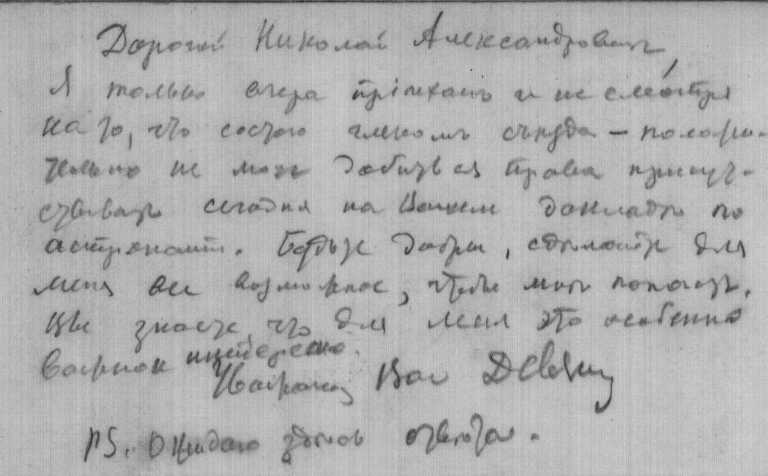 Дорогой Николай Александрович,
Я только вчера пріѣхалъ и не смотря
на то, что состою членомъ съѣзда – положи-
тельно не могу добиться права присут-
ствовать сегодня на Вашемъ докладѣ по
астрономіи. Будьте добры, сдѣлайте для
меня все возможное, чтобы мнѣ попасть.
Вы знаете, что для меня это особенно
важно и интересно.
Уважающій Вас
PS. Ожидаю здѣсь отвѣта.